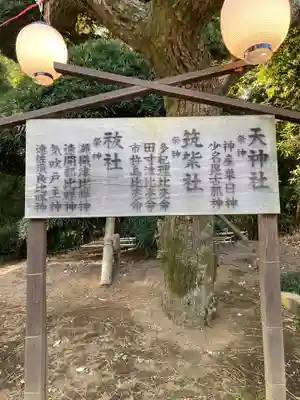 天神社
祭神
神産巣日神
少名毘古那神
筑紫社
祭神
多紀理比売命
田寸津比売命
市杵島比売命
祓社
祭神
瀬織津比咩神
速開都比咩神
気吹戸主神
速佐須良比咩神